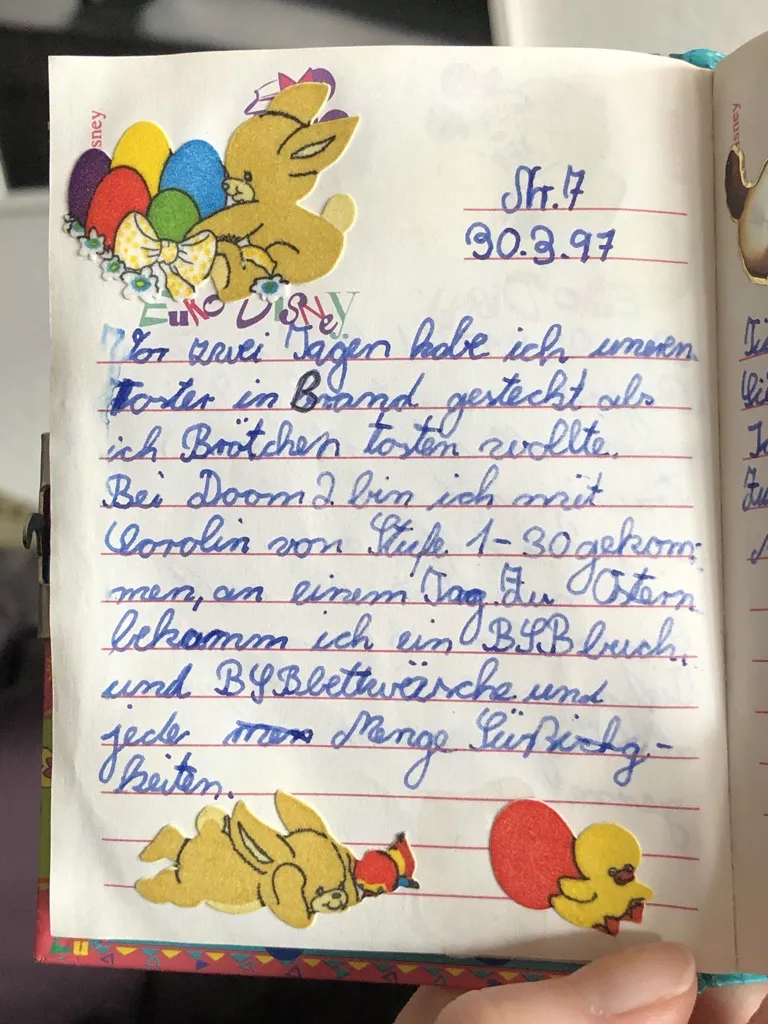 sney
Str. 7
30.3.97
EURO DISNEY
Vor zwei Tagen habe ich uneren
Toster in Brand gesteckt als
ich Brötchen tosten wollte.
Bei Doom 2 bin ich mit
Carolin von Stufe 1-30 gekom-
men, an einem Tag. Zu Ostern
bekamm ich ein BSB buch,
und BSBbettwärsche und
jede Menge Süßichg-
keiten.
Eu